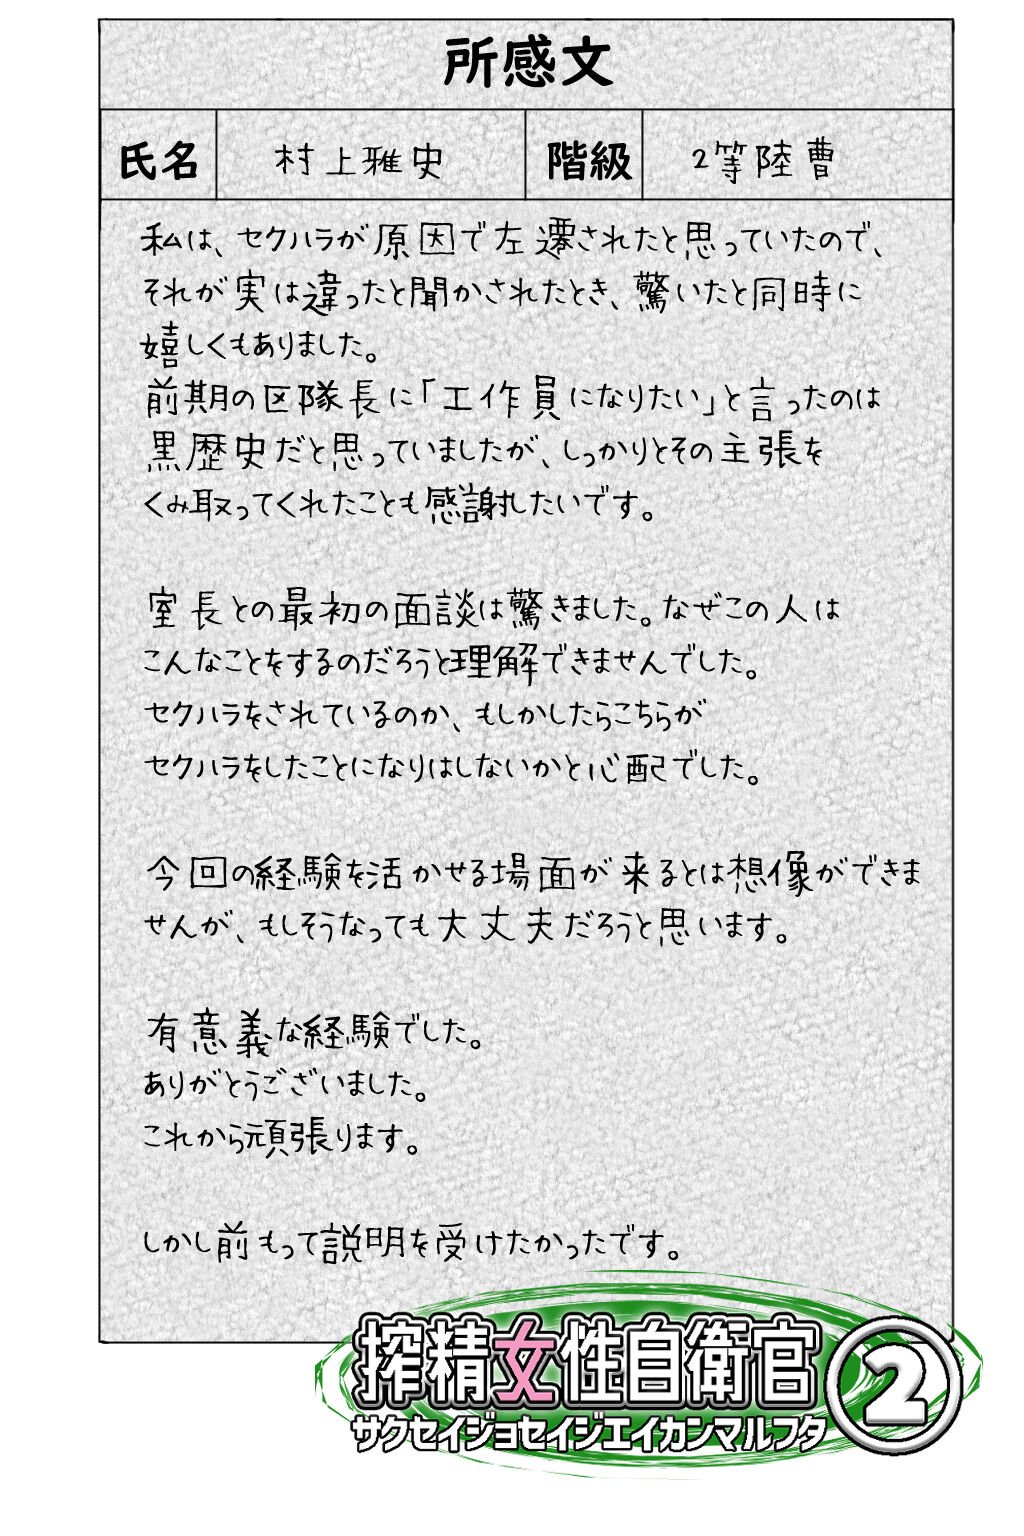 所感文
氏名 村上雅史 階級 2等陸曹
私は、セクハラが原因で左遷されたと思っていたので、
それが実は違ったと聞かされたとき、驚いたと同時に
嬉しくもありました。
前期の区隊長に「工作員になりたい」と言ったのは
黒歴史だと思っていましたが、しっかりとその主張を
くみ取ってくれたことも感謝したいです。
室長との最初の面談は驚きました。なぜこの人は
こんなことをするのだろうと理解できませんでした。
セクハラをされているのか、もしかしたらこちらが
セクハラをしたことになりはしないかと心配でした。
今回の経験を活かせる場面が来るとは想像ができま
せんが、もしそうなっても大丈夫だろうと思います。
有意義な経験でした。
ありがとうございました。
これから頑張ります。
しかし前もって説明を受けたかったです。
搾精女性自衛官②
サクセイジョセイジエイカンマルフタ